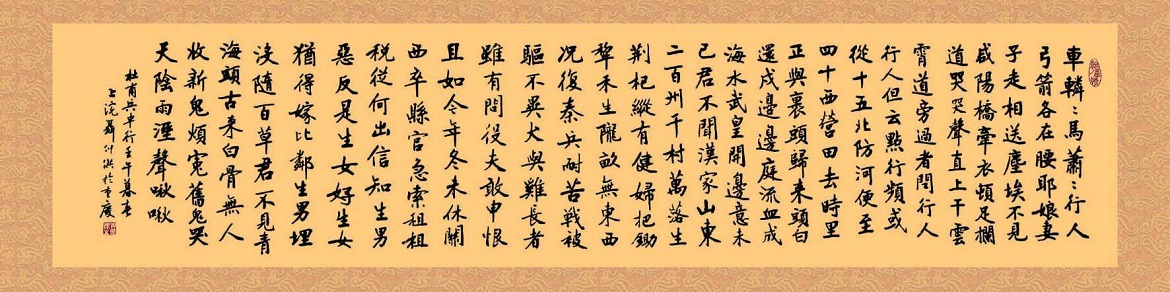 車轔〻馬蕭〻行人
弓箭各在腰耶娘妻
子走相送塵埃不見
咸陽橋牽衣頓足攔
道哭哭聲直上干雲
霄道旁過者問行人
行人但云點行頻或
從十五北防河便至
四十西營田去時里
正與裹頭歸來頭白
還戍邊邊庭流血成
海水武皇開邊意未
已君不聞漢家山東
二百州千村萬落生
荊杞縱有健婦把鋤
犂禾生隴畝無東西
况復秦兵耐苦戰被
驅不異犬與雞長者
雖有問役夫敢申恨
且如今年冬未休關
西卒縣官急索租租
税從何出信知生男
惡反是生女好生女
猶得嫁比鄰生男埋
没隨百草君不見青
海頭古來白骨無人
收新鬼煩冤舊鬼哭
天陰雨溼聲啾啾
杜甫兵車行壬午暮春
上浣聶仲於重慶